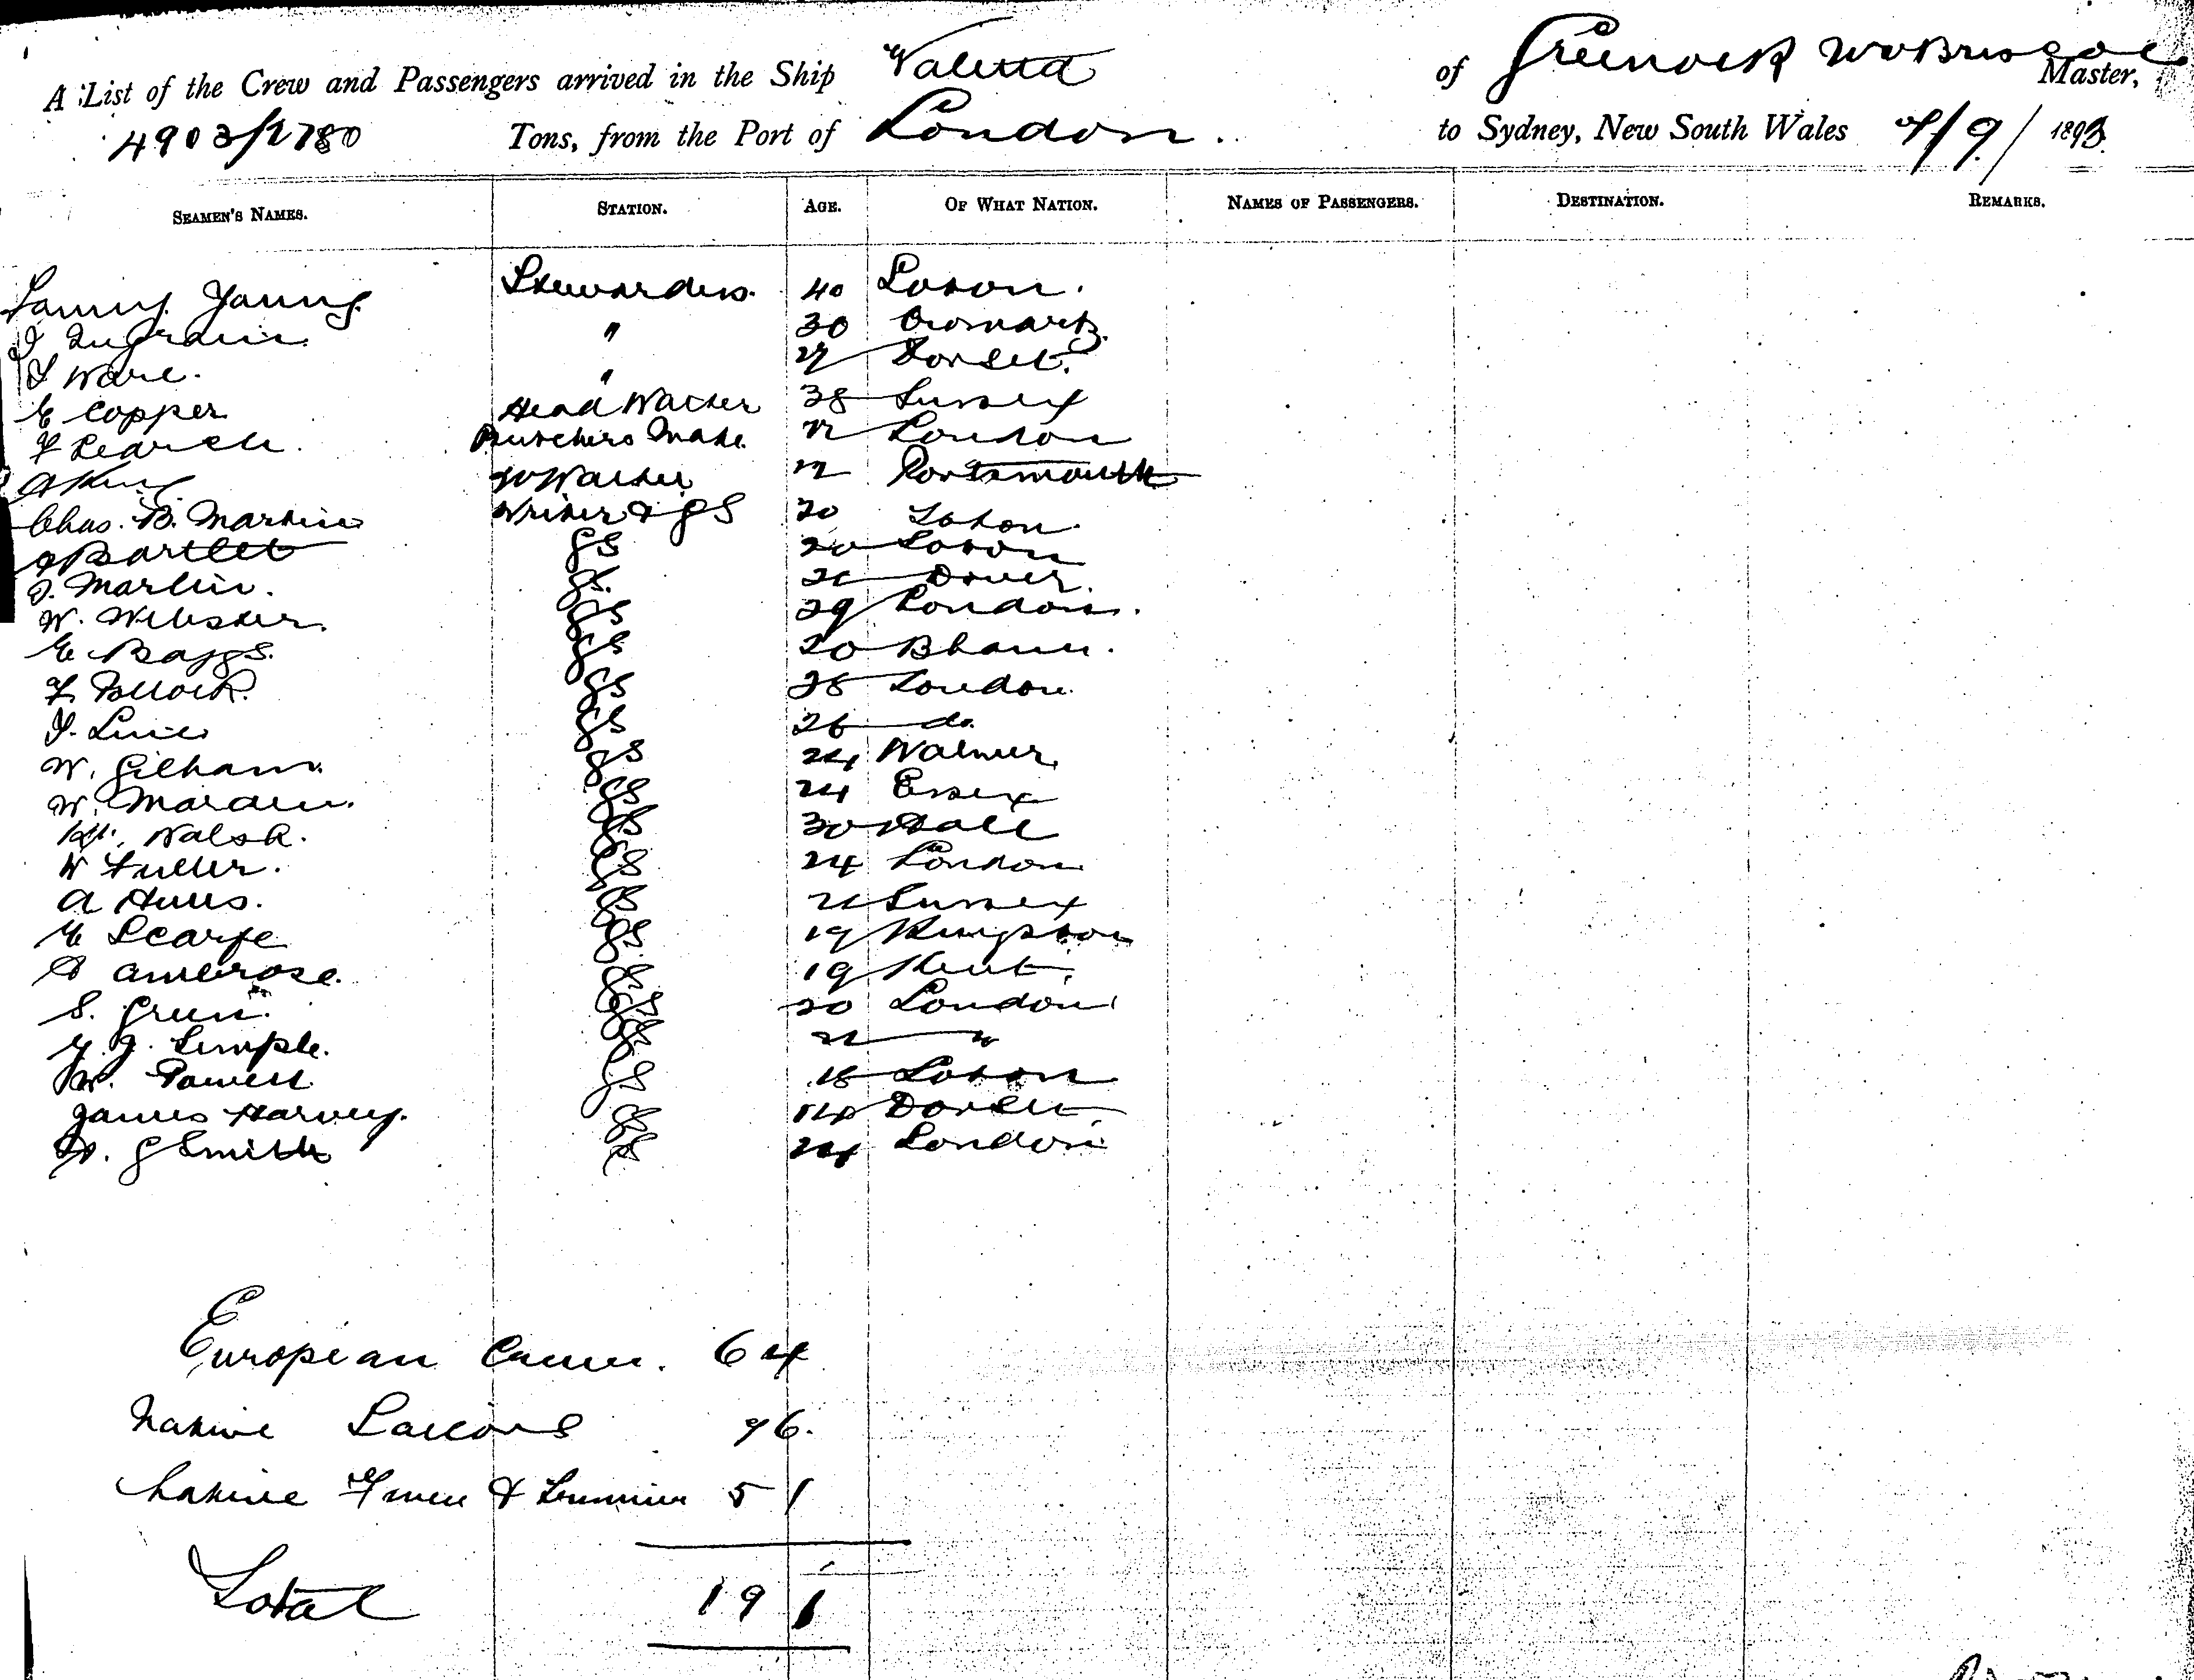 A List of the Crew and Passengers arrived in the Ship Valetta of Greenock W Briscoe Master,
4903/2780 Tons, from the Port of London. to Sydney, New South Wales 4/9/1893
SEAMEN'S NAMES. STATION. AGE. OF WHAT NATION. NAMES OF PASSENGERS. DESTINATION. REMARKS.
Fanny Young Stewardess. 40
" 30 Cromarty.
Ware. " 27 Dorset.
E Copper Head Waiter 38 Sussex
F Search. Butchers Mate 22 London
A King Waiter 22 Portsmouth
Chas. B. Martin Writer & GS 20
Bartlet GS 20
J. Martin. GS. Dover.
W. Webster. GS 29 London.
E Baggs. GS 20 Bham.
F. Pollock. GS 28 London.
GS 26 do.
W. Gilham. GS 24 Walmer
W. Marden. GS 24 Essex
Walsh. GS 30
W Fuller. GS 24 London
A GS Sussex
E Scarfe GS 19 Kingston
Ambrose. GS 19 Kent.
S. Green. GS 20 London
J. Semple. GS "
W. Powell GS 18
James Harvey. GS Dorset
G Smith GS 24 London
European Crew. 64
Native Lascars 76.
Native Fmen & Trimmers 51
Total 191